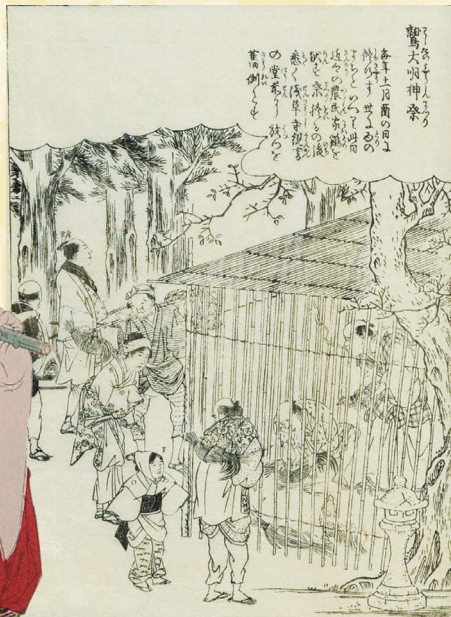 鷲大明神祭
毎年十一月酉の日に
修行す世に酉の
まちといへり此日
近郷の農民家鶏を
献す祭終るの後
悉く浅草寺観音
の堂前に放つを
舊例とす